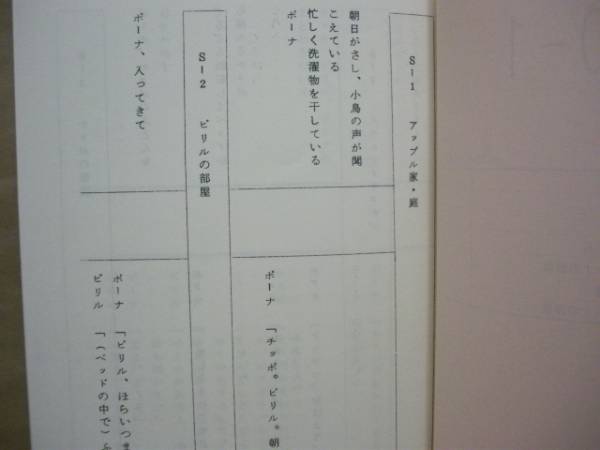 S-1 アップル家・庭
朝日がさし、小鳥の声が聞
こえている
忙しく洗濯物を干している
ポーナ
ポーナ 「チッポ。ピリル。朝
S-2 ピリルの部屋
ポーナ、入ってきて
ポーナ 「ピリル、ほらいつま
ピリル 「(ベッドの中で)